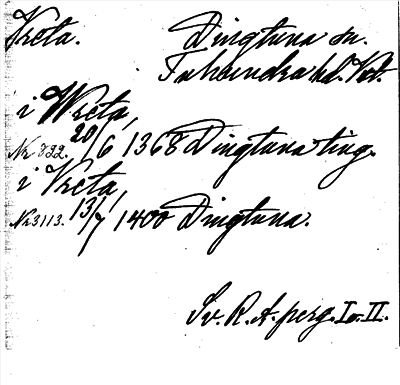 Vreta. Dingtuna sn.
Tuhundra hd. Vstm.
i Wreta,
Nr 722. 20/6 1368 Dingtuna ting.
i Vreta,
Nr 3113. 13/7 1400 Dingtuna.
Sv. R. A. perg. I o. II.